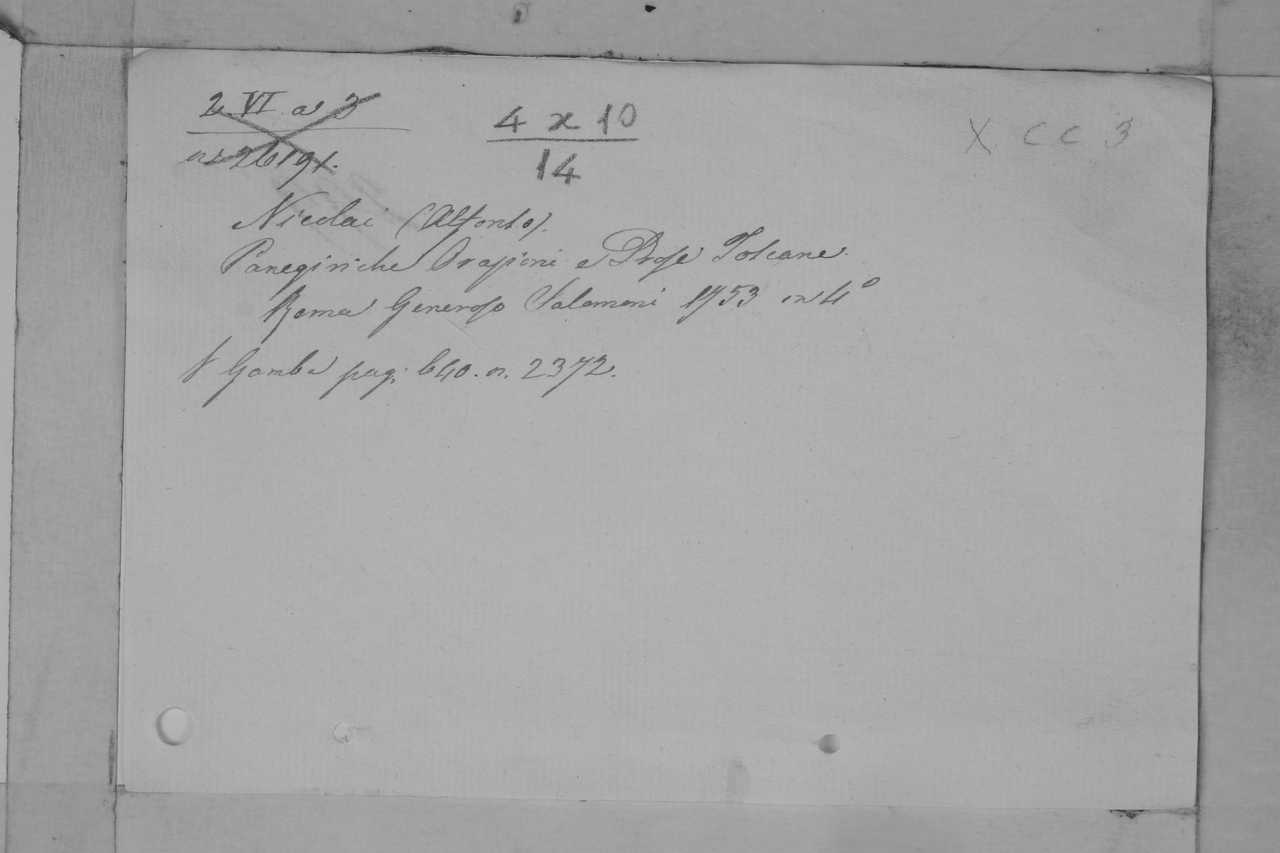 2. VI. a 3
n. 26191.
4 x 10
14
X C C 3
Nicolai (Alfonso).
Panegiriche Orazioni e Prose Toscane.
Roma Generoso Salomoni 1753 in 4º
V Gamba pag. 640. n. 2372.